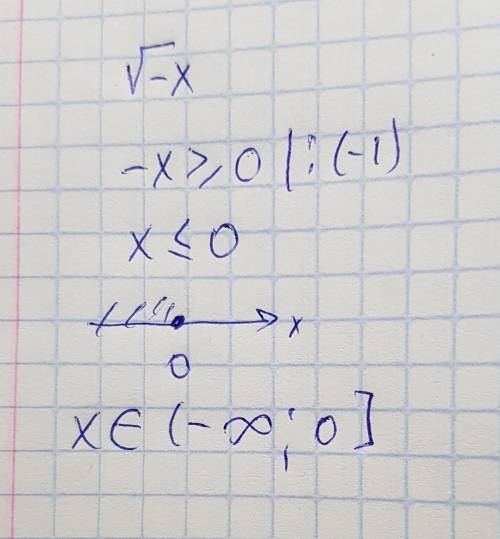 √-x
-x ⩾ 0 | : (-1)
x ≤ 0
x
0
x ∈ (-∞ ; 0]